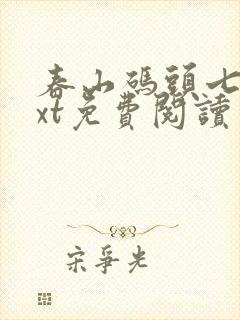 春山碼頭七
xt免費閱讀
宋爭光